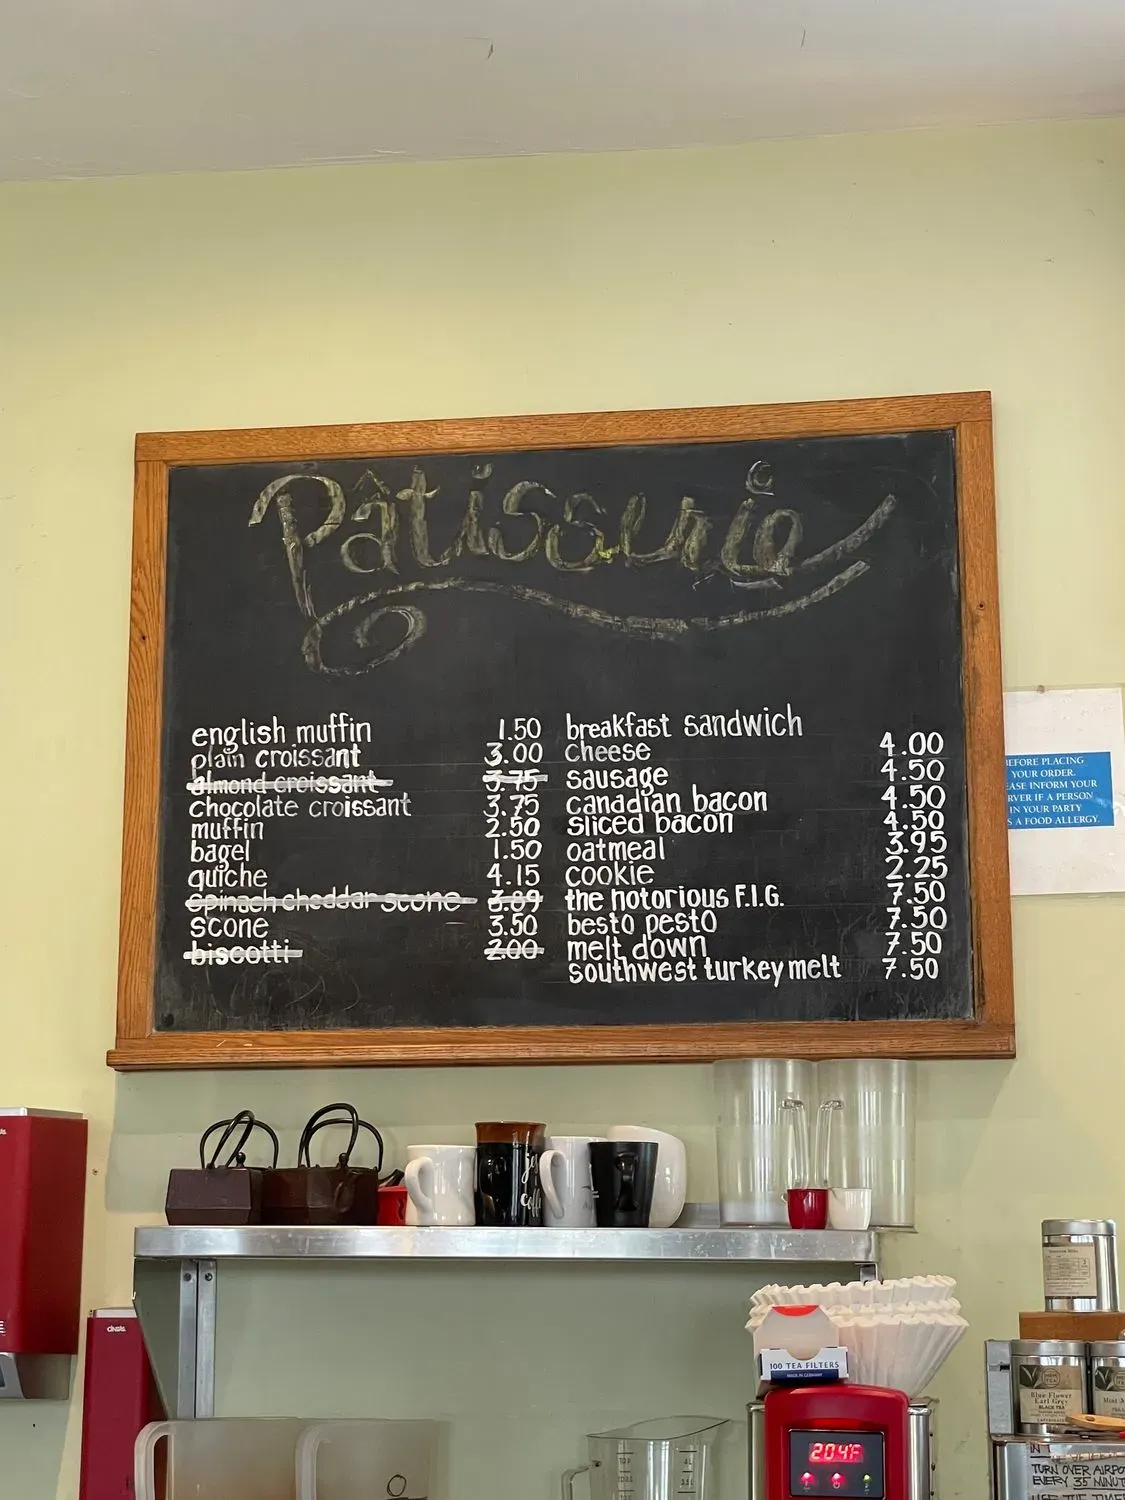 Pâtisserie
english muffin 1.50
plain croissant 3.00
almond croissant 3.75
chocolate croissant 3.75
muffin 2.50
bagel 1.50
quiche 4.15
spinach cheddar scone 3.89
scone 3.50
biscotti 2.00
breakfast sandwich
cheese 4.00
sausage 4.50
canadian bacon 4.50
sliced bacon 4.50
oatmeal 3.95
cookie 2.25
the notorious F.I.G. 7.50
besto pesto 7.50
melt down 7.50
southwest turkey melt 7.50
BEFORE PLACING
YOUR ORDER.
PLEASE INFORM YOUR
SERVER IF A PERSON
IN YOUR PARTY
HAS A FOOD ALLERGY.
100 TEA FILTERS
MADE IN GERMANY
204°F
Blue Flower
Earl Grey
BLACK TEA
TURN OVER AIRPO
EVERY 35 MINUT